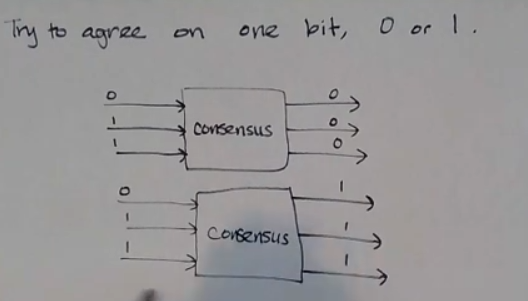 Try to agree on one bit, 0 or 1.
0
1
1
consensus
0
0
0
0
1
1
consensus
1
1
1